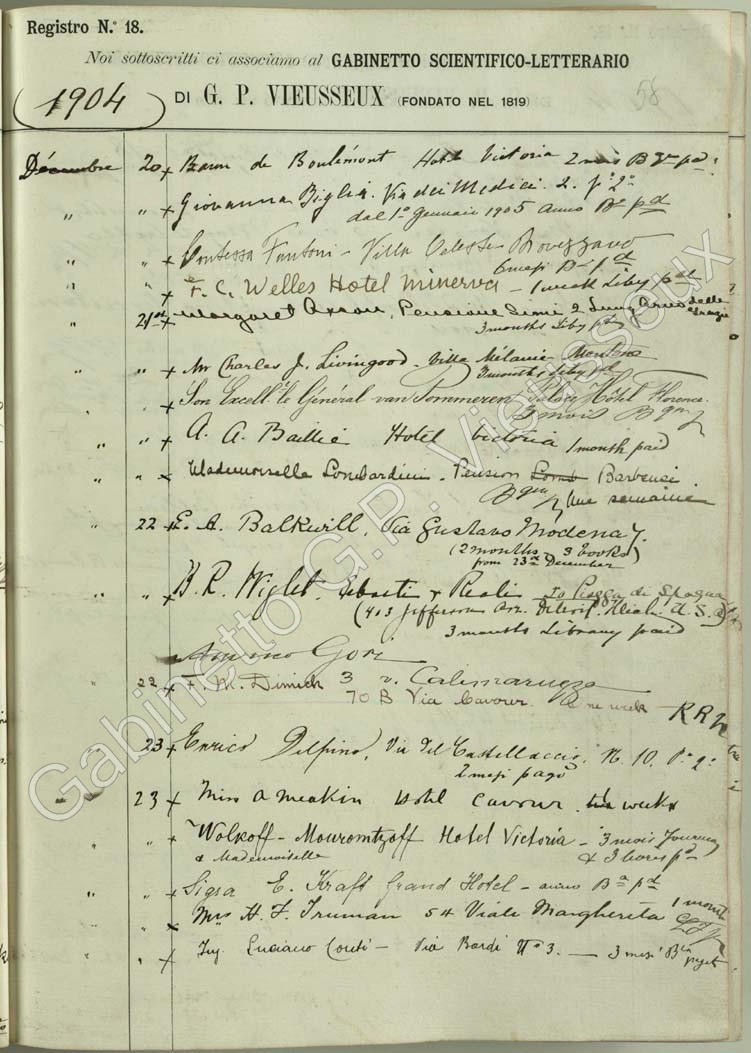 Registro N.° 18.
Noi sottoscritti ci associamo al GABINETTO SCIENTIFICO-LETTERARIO
1904 DI G. P. VIEUSSEUX (FONDATO NEL 1819) 58
Décembre 20 Baron de Boulémont Hotel Victoria 2 mois
" " Giovanna Biglia. Via dei Medici. 2. p° 2°
dal 1° Gennaio 1905 anno Bª pd
" " Contessa Fantoni - Villa Celeste Rovezzano
6 mesi B- pd
" " F. C. Welles Hotel Minerva - 1 week Liby pd
" 21st Margaret Pensione Simi 2 Lung Arno delle Grazie
3 months Liby pd
" " Mr Charles J. Livingood. Villa Mélanie Mentone
3 months Liby pd
" " Son Excell. le Général van Pommeren Palace Hôtel Florence.
3 mois B
" " A. A. Baillie Hotel Victoria 1 month paid
" " Mademoiselle Lombardini. Pension Barbensi.
Une semaine
" 22 E. A. Balkwill, Via Gustavo Modena 7.
(2 months 3 books)
from 23rd December
" " B. R. Sebasti & Reali 20 Piazza di Spagna
(413 Jefferson Ave. Detroit. U.S.A)
3 months Library paid
Gori
22 F. M. Dimick 3 v. Calimaruzza
70 B Via Cavour. One week -
" 23 Enrico Delpino, Via del Castellaccio. N. 10. P° 2°
2 mesi pago
" 23 Miss A Meakin Hotel Cavour. week
" " Wolkoff - Mouromtzoff Hotel Victoria - 3 mois
& Mademoiselle & 3 livres pd
" " Sigra E. Kraft Grand Hotel - anno Bª pd
" Mrs H. F. Truman 54 Viale Margherita 1 month
" Ing. Luciano Conti - Via Bardi N° 3. - 3 mesi
Gabinetto G.P. Vieusseux